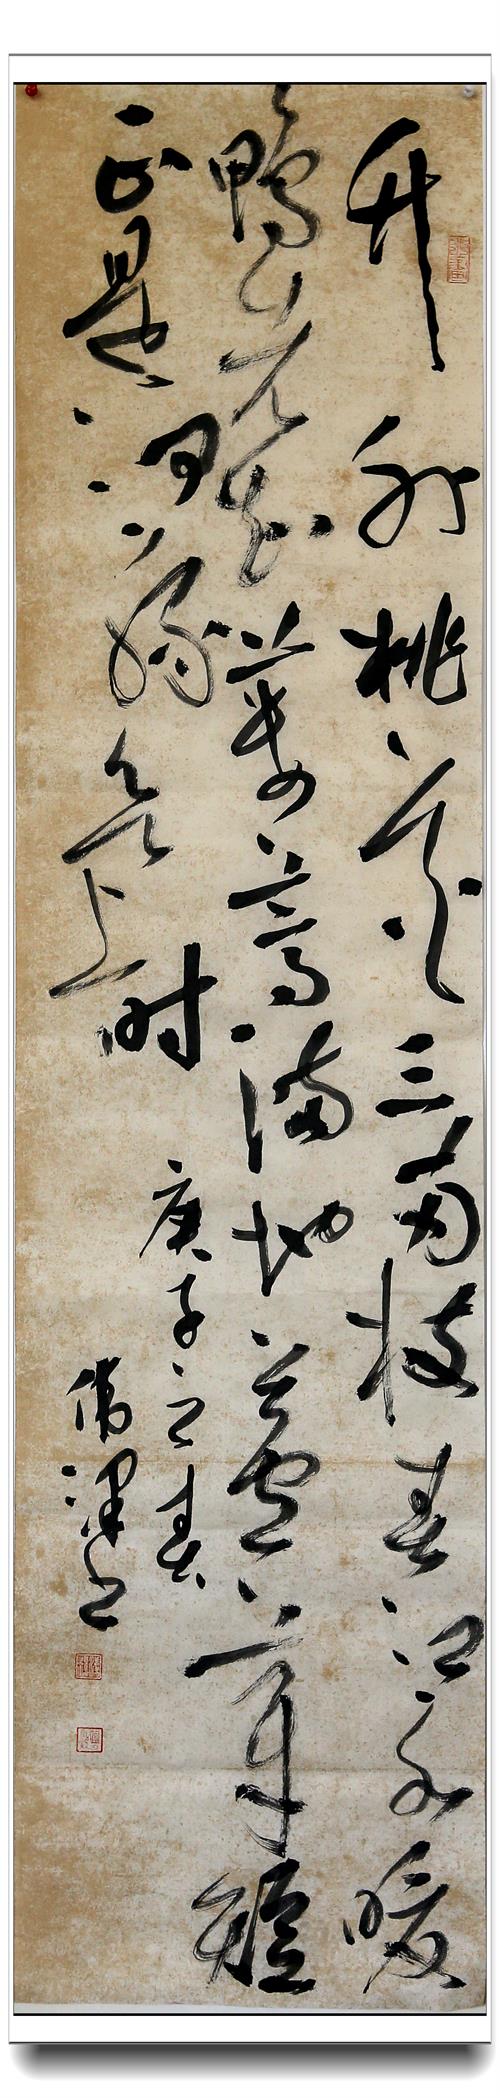 竹外桃花三两枝春江水暖
鸭先知蒌蒿满地芦芽短
正是河豚欲上时
庚子之春